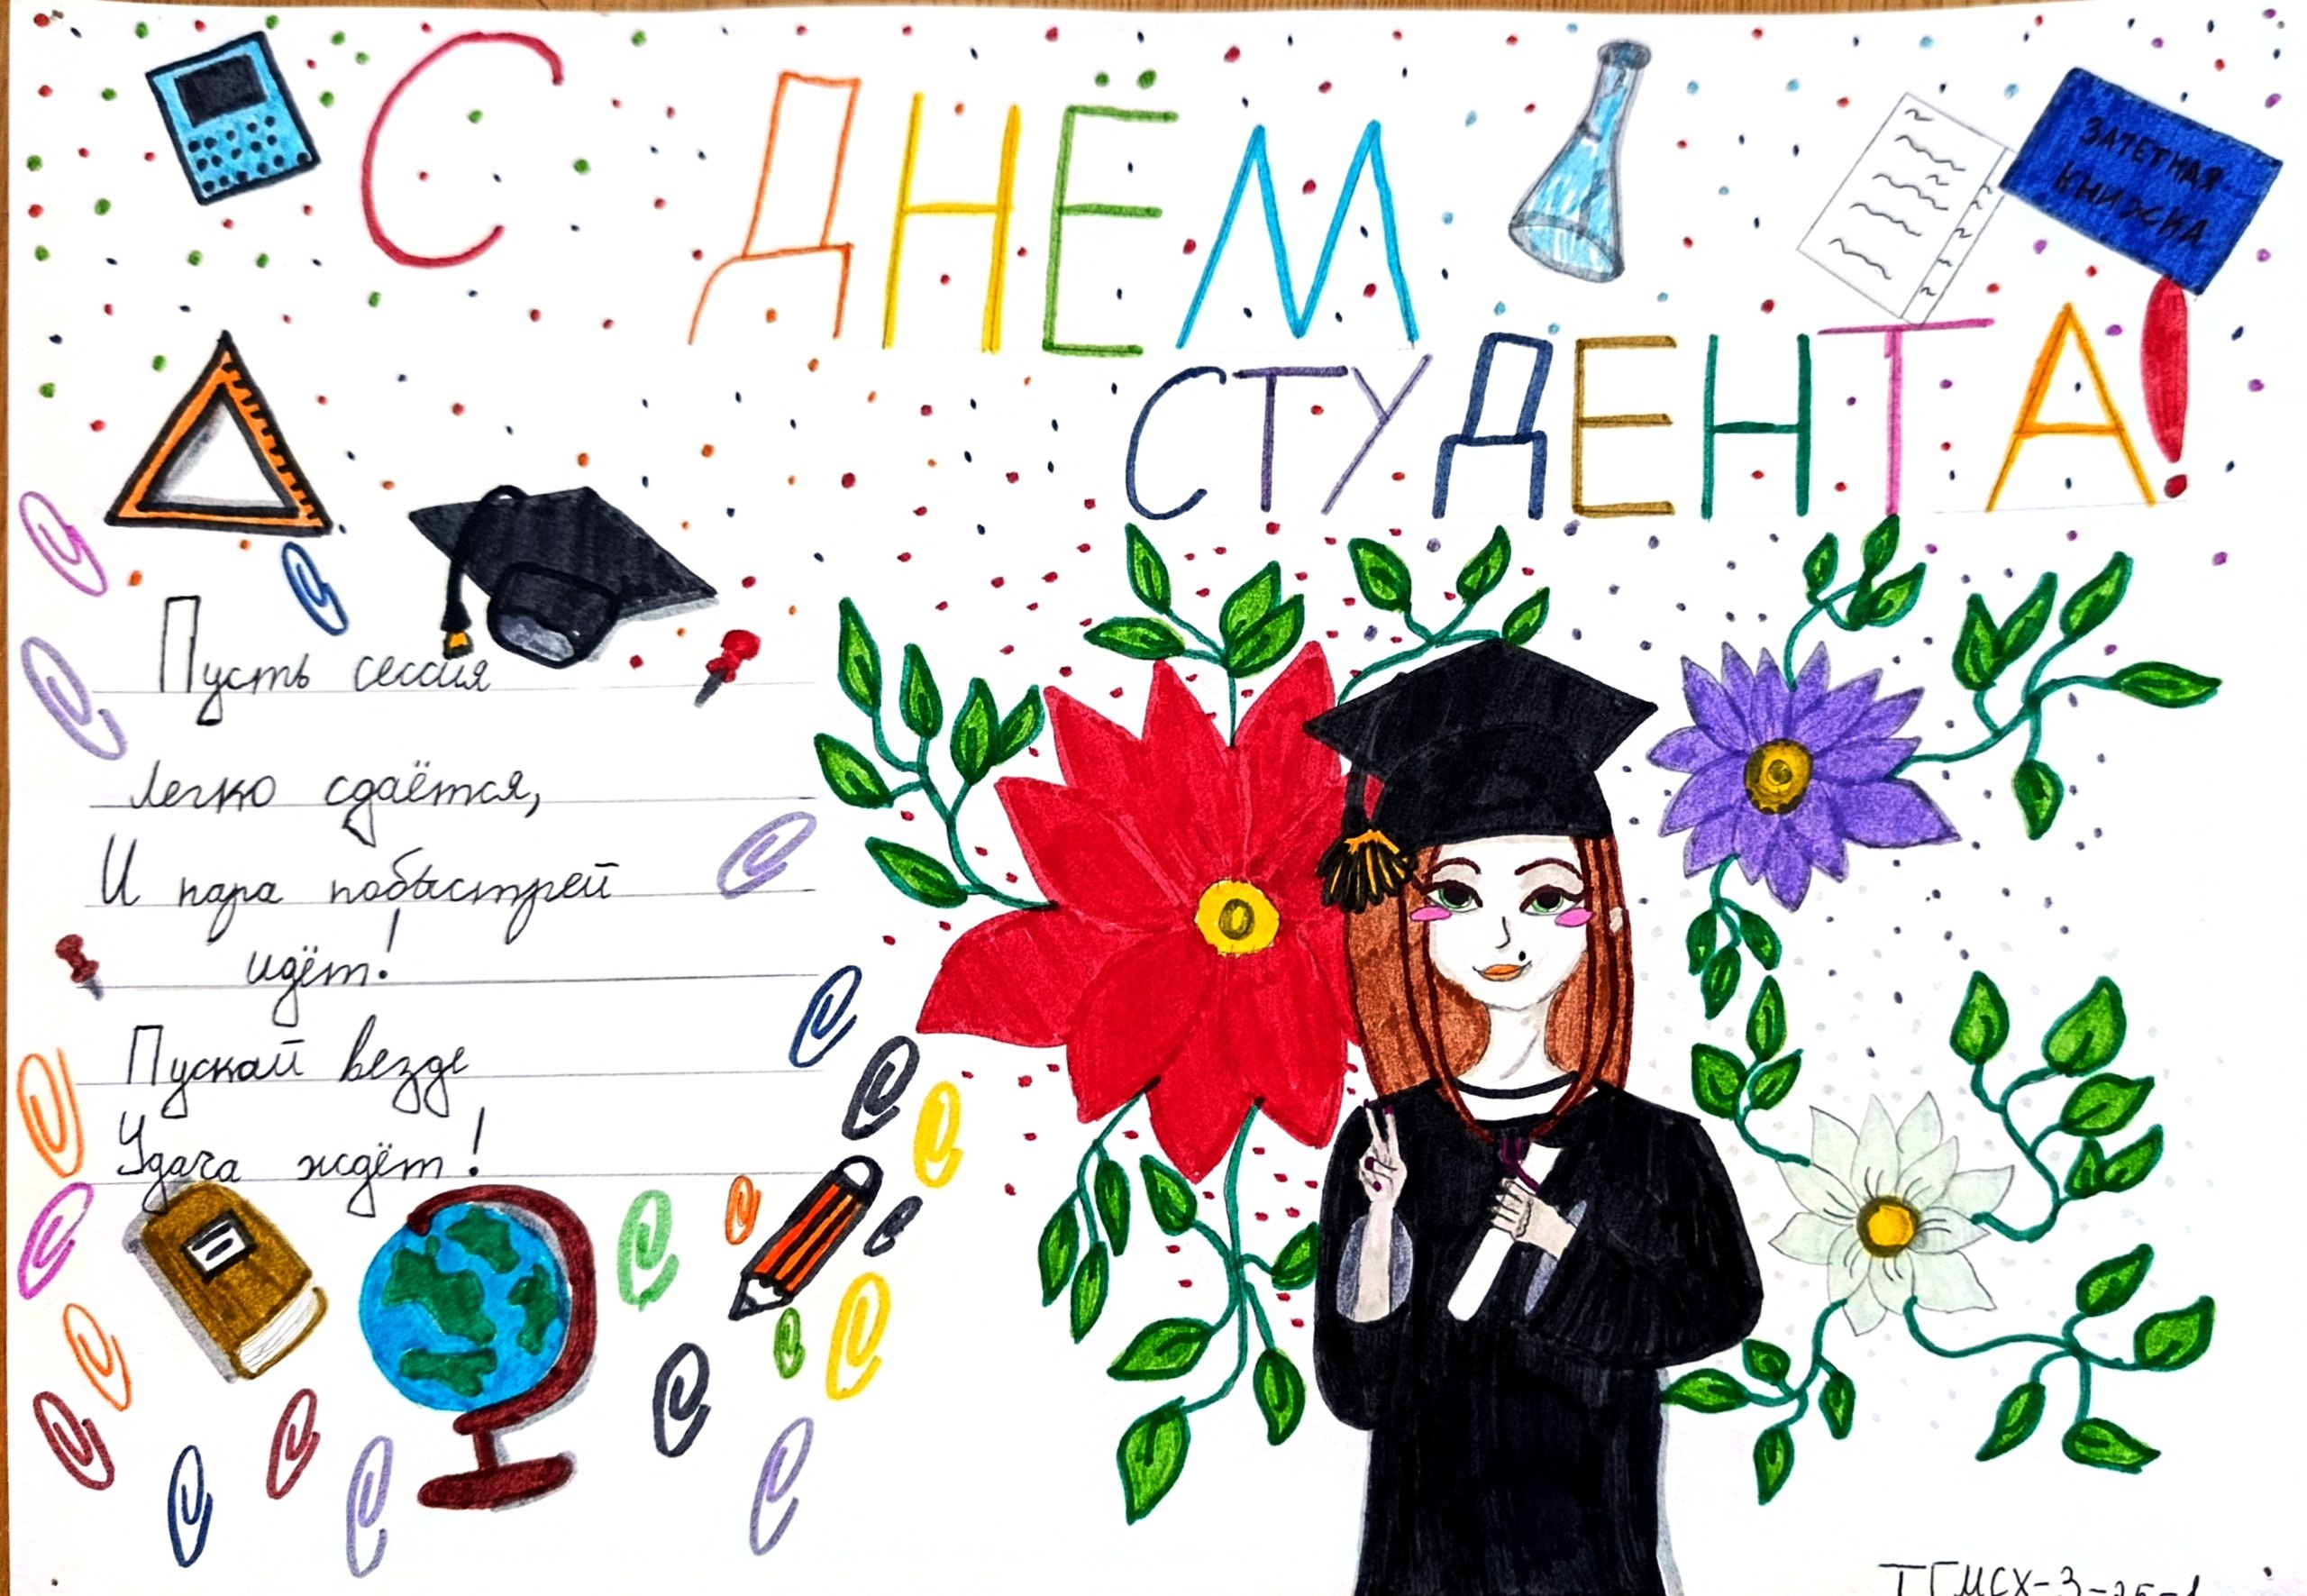 С ДНЁМ
СТУДЕНТА!
ЗАЧЕТНАЯ
КНИЖКА
Пусть сессия
легко сдаётся,
И пара побыстрей
идёт!
Пускай везде
Удача ждёт!
ТГМСХ-3-25-1